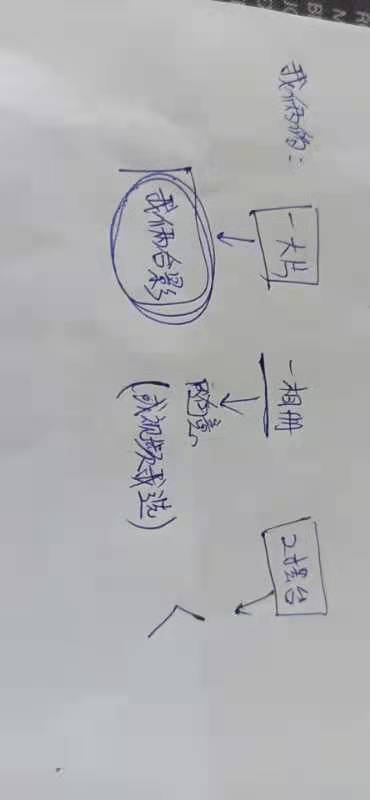 我俩的:
一大片
我俩合影
一相册
随意
(或视频我选)
2摆台